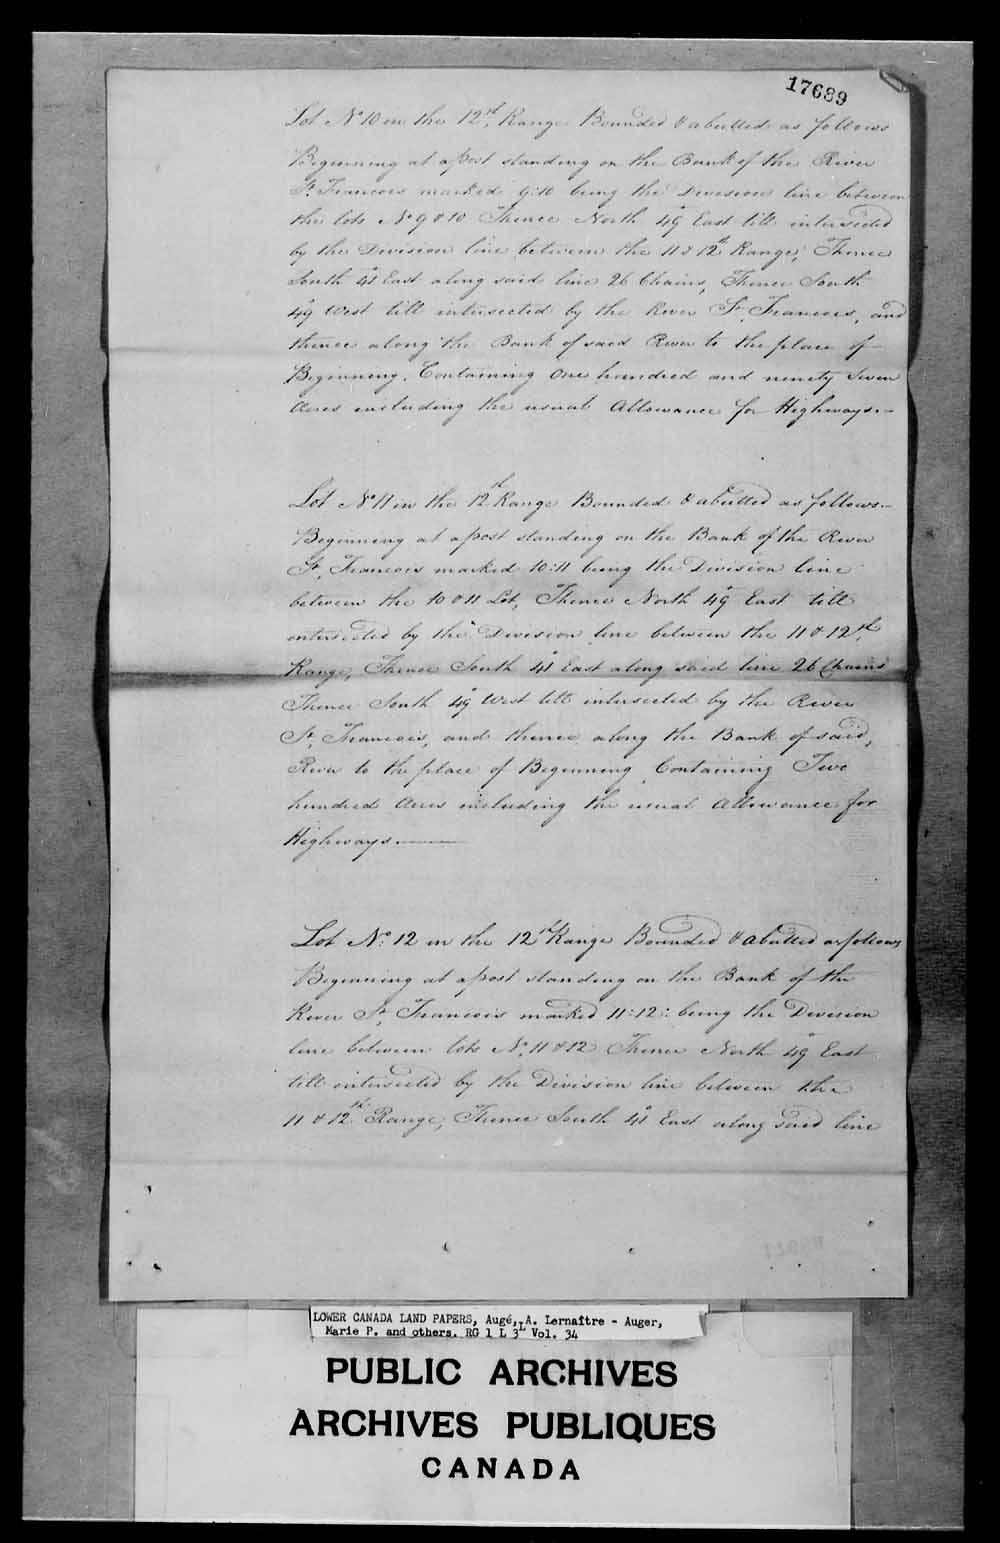 17689
Lot No 10 in the 12th, Range Bounded & abutted as follows
Beginning at a post standing on the Bank of the River
St. Francois marked 9:10 being the Division line between
the lots No 9 & 10 Thence North 49° East till intersected
by the Division line between the 11 & 12th Range, Thence
South 41° East along said line 26 Chains, Thence South
49° West till intersected by the River St. Francois, and
thence along the Bank of said River to the place of
Beginning. Containing One hundred and ninety Seven
Acres including the usual Allowance for Highways.—
Lot No 11 in the 12th Range Bounded & abutted as follows.—
Beginning at a post standing on the Bank of the River
St, Francois marked 10:11 being the Division line
between the 10 & 11 Lot, Thence North 49° East till
intersected by the Division line between the 11 & 12th,
Range, Thence South 41° East along said line 26 Chains
Thence South 49° West till intersected by the River
St, Francois, and thence along the Bank of said,
River to the place of Beginning Containing Two
hundred Acres including the usual Allowance for
Highways.———
Lot No: 12 in the 12th Range Bounded & abutted as follows
Beginning at a post standing on the Bank of the
River St, Francois marked 11:12: being the Division
line between lots No, 11 & 12 Thence North 49° East
till intersected by the Division line between the
11 & 12th Range, Thence South 41° East along said line
LOWER CANADA LAND PAPERS, Augé, A. Lernaître - Auger,
Marie P. and others. RG 1 L 3L Vol. 34
PUBLIC ARCHIVES
ARCHIVES PUBLIQUES
CANADA